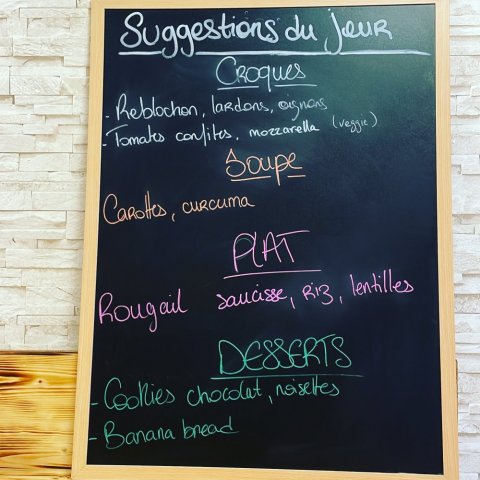 Suggestions du jour
Croques
- Reblochon, lardons, oignons
- Tomates confites, mozzarella (veggie)
Soupe
Carottes, curcuma
PLAT
Rougail saucisse, riz, lentilles
DESSERTS
- Cookies chocolat, noisettes
- Banana bread